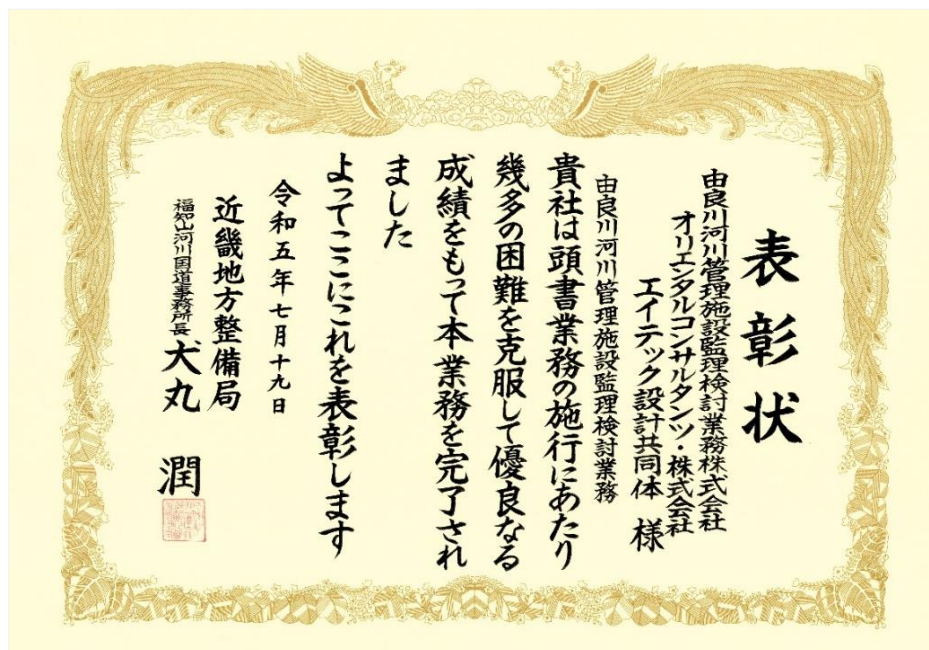 表彰状
由良川河川管理施設監理検討業務株式会社
オリエンタルコンサルタンツ・株式会社
エイテック設計共同体 様
由良川河川管理施設監理検討業務
貴社は頭書業務の施行にあたり
幾多の困難を克服して優良なる
成績をもって本業務を完了され
ました
よってここにこれを表彰します
令和五年七月十九日
近畿地方整備局
福知山河川国道事務所長 犬丸 潤